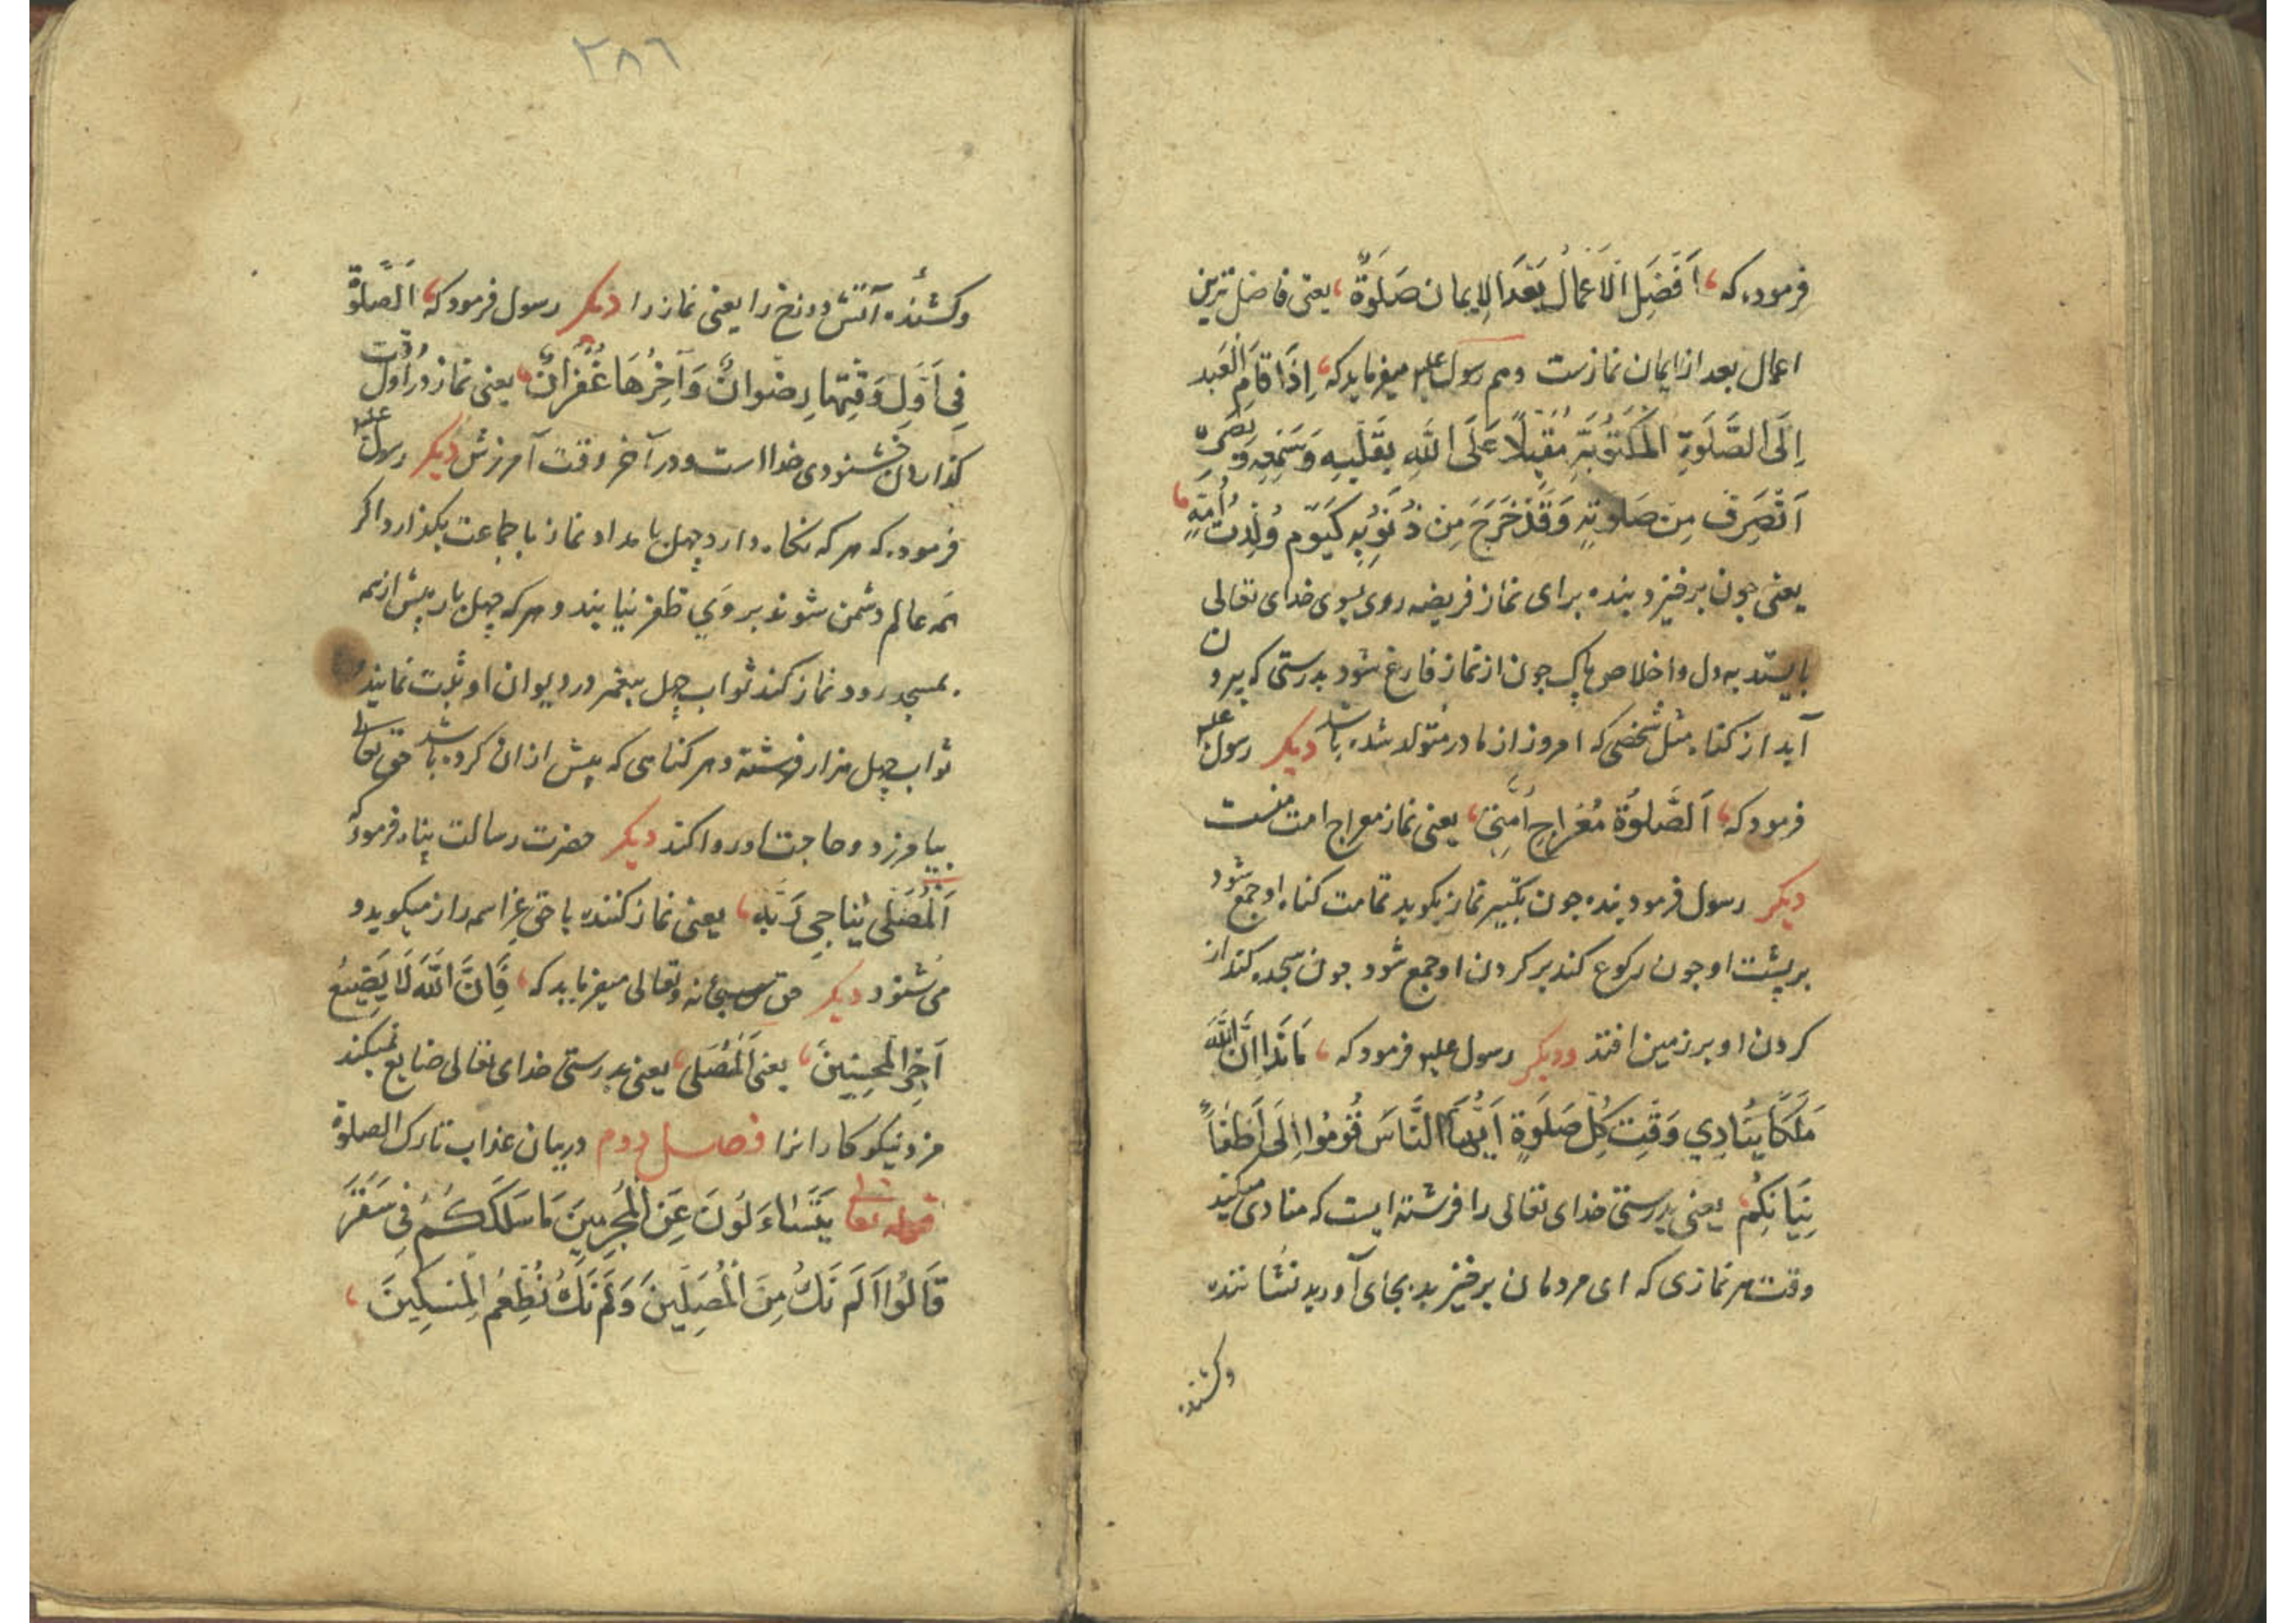 فرموده که، اَفْضَلِ الَاعْمَالُ بَعْدَ الاِیمان صَلَوةٌ، یعنی فاضل ترین
اعمال بعد از ایمان نمازست و هم رسول علیه میفرماید که، اِذَا قَامِ الْعَبد
اِلَی الصَّلَوةِ الْمَکْتُوبَةِ مُقْبِلًا عَلَی اللهِ بِقَلْبِهِ وَسَمْعِهِ وَبَصَرِهِ
اَنْصَرِفَ مِن صَلوتِهِ وَقَدْ خَرَجَ مِن ذُنُوبِهِ کَیَوْم وُلِدَتْ اُمِّهِ،
یعنی چون برخیزد بنده برای نماز فریضه روی بسوی خدای تعالی
بایستد به دل و اخلاص پاک چون از نماز فارغ شود بدرستی که بیرون
آید از کناه مثل شخصی که امروز از مادر متولد شده باشد دیکر رسول علیه
فرمود که، اَلصَّلوةُ مُعْراجِ اُمَّتِی، یعنی نماز معراج امت منست
دیکر رسول فرمود بنده چون تکبیر نماز بکوید تمامت کناه او جمع شود
بر پشت او چون رکوع کند بر کردن او جمع شود چون سجده کند از
کردن او بر زمین افتد و دیکر رسول علیه فرمود که، اِنَّ اللّه
مَلَکاً یُنَادِی وَقْتِ کُلِّ صَلَوةٍ اَیُّهَا النَّاسَ قُومُوا اِلَی اَطْفَاً
نِیَانِکُم، یعنی بدرستی خدای تعالی را فرشته ایست که منادی میکند
وقت هر نمازی که ای مردمان برخیزید بجای آورید نشانند
وکشنده
٢٨٦
وکشنده آتش دوزخ را یعنی نماز را دیکر رسول فرمود که، اَلصَّلوة
فِی اَوَّلِ وَقْتِهَا رِضْوانٌ وَآخِرُهَا غُفْرانٌ، یعنی نماز در اول وقت
کذاردن خشنودی خدا است و در آخر وقت آمرزش دیکر رسول علیه
فرموده که هر که نکاه دارد چهل بامداد نماز با جماعت بکذارد اکر
همه عالم دشمن شوند بر وَی ظفر نیابند و هر که چهل بار پیش از همه
بمسجد رود نماز کند ثواب چهل پیغمبر در دیوان او ثبت نمایند
ثواب چهل هزار فرشته و هر کناهی که پیش از ان کرده باشد حق تعالی
بیامرزد و حاجت او روا کند دیکر حضرت رسالت پناه فرموده
اَلْمُصَلِّی یُنَاجِی رَبّه، یعنی نماز کننده با حق عز اسمه راز میکوید و
می شنود دیکر حق سبحانه و تعالی میفرماید که، فَاِنَّ اللّهَ لَا یَضِیعُ
اَجْرِ الْمُحْسِنِینَ، یعنی اَلْمُصَلی، یعنی بدرستی خدای تعالی ضایع نمیکند
مزد نیکو کارانرا فصل دوم در بیان عذاب تارک الصلوة
قوله تعالی یَتَسَاءَلُونَ عَنِ الْمُجْرِمِینَ مَا سَلَکَکُمْ فِی سَقَرَ
قَالُوا اَلَمْ نَکُ مِنَ الْمُصَلِّینَ وَلَمْ نَکُ نُطْعِمُ الْمِسْکِینَ،